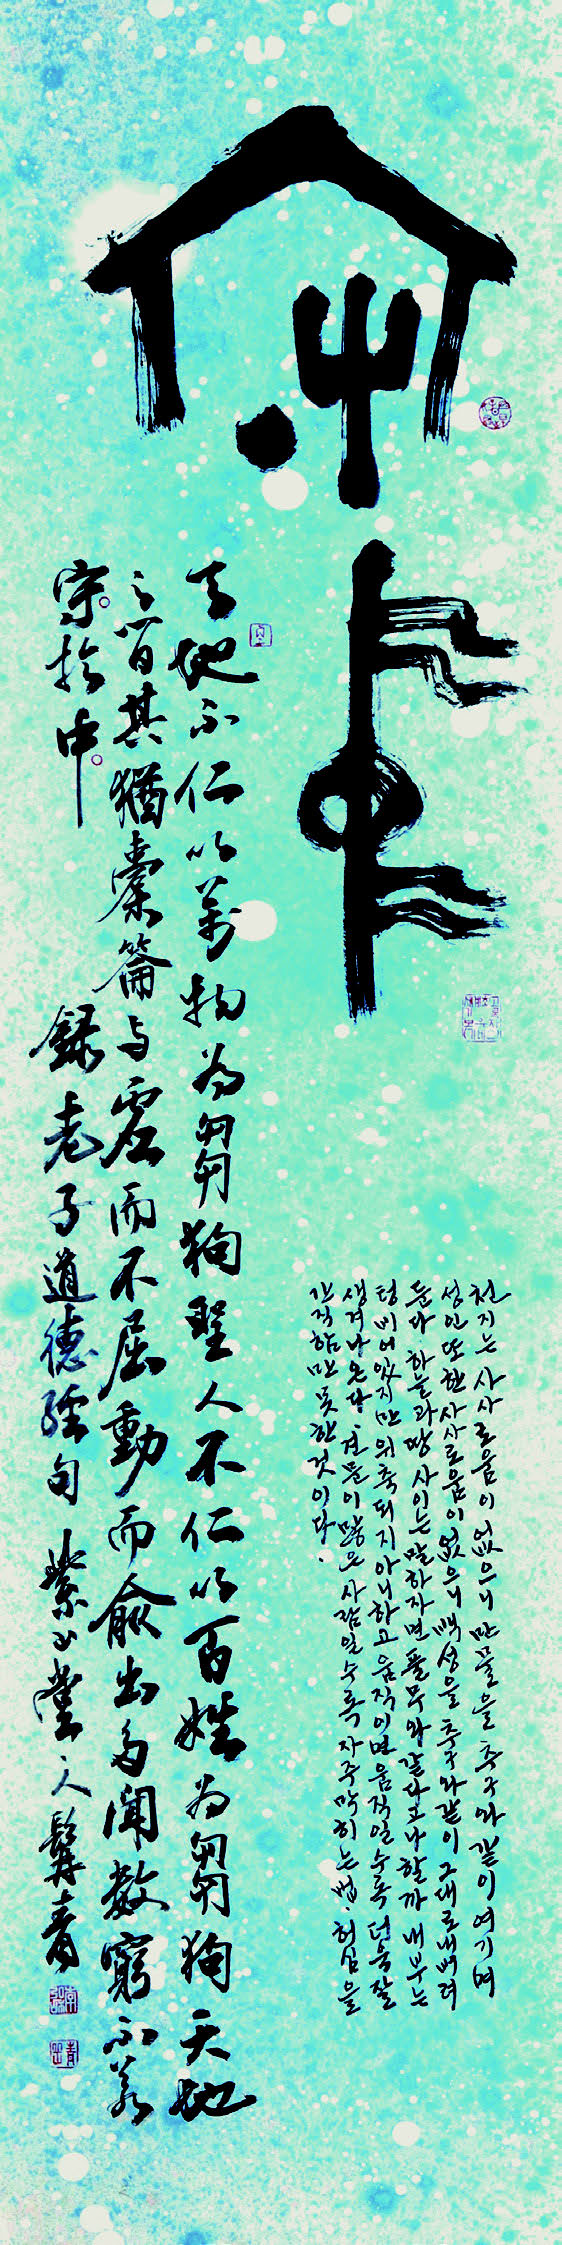 守
中
천지는 사사로움이 없으니 만물을 추구와 같이 여기며
성인 또한 사사로움이 없으니 백성을 추구와 같이 그대로 내버려
둔다 하늘과 땅 사이는 말하자면 풀무와 같다고나 할까 내부는
텅 비어있지만 위축되지 아니하고 움직이면 움직일수록 더욱 잘
생겨나온다. 견문이 많은 사람일수록 자주 막히는 법. 허심을
간직함만 못한 것이다.
天地不仁以萬物為芻狗聖人不仁以百姓為芻狗天地
之間其猶橐籥与虛而不屈動而俞出多聞數窮不若
守於中
錄老子道德經句